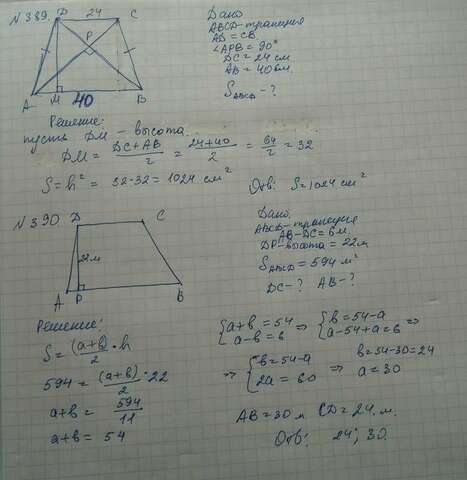 N 389.
D 24 C
P
A M 40 B
Дано
ABCD-трапеция
AD = CB.
∠APB = 90°
DC = 24 см
AB = 40 см.
S ABCD - ?
Решение:
пусть DM - высота.
DM = DC+AB / 2 = 24+40 / 2 = 64 / 2 = 32
S = h² = 32·32 = 1024 см²
Отв: S=1024 см²
N 390.
D C
22м
A P B
Дано.
ABCD-трапеция
AB-DC=6м.
DP-высота = 22м
S ABCD = 594 м²
DC - ? AB - ?
Решение:
S = (a+b) / 2 · h
594 = (a+b) / 2 · 22
a+b = 594 / 11
a+b = 54
{a+b = 54 a-b = 6 ⇒ {b=54-a a-54+a=6 ⇒
⇒ {b=54-a 2a = 60 ⇒ b=54-30=24 a=30
AB = 30 м CD = 24 м.
Отв: 24; 30.